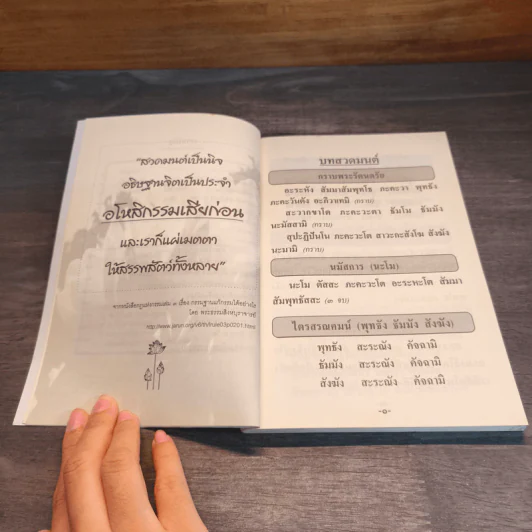 “สวดมนต์เป็นนิจ
อธิษฐานจิตเป็นประจำ
อโหสิกรรมเสียก่อน
และเราก็แผ่เมตตา
ให้สรรพสัตว์ทั้งหลาย”
จากหนังสือกฎแห่งกรรมเล่ม ๓ เรื่อง กรรมฐานแก้กรรมได้อย่างไร
โดย พระธรรมสิงหบุราจารย์
บทสวดมนต์
กราบพระรัตนตรัย
อะระหัง สัมมาสัมพุทโธ ภะคะวา พุทธัง
ภะคะวันตัง อะภิวาเทมิ (กราบ)
สะวากขาโต ภะคะวะตา ธัมโม ธัมมัง
นะมัสสามิ (กราบ)
สุปะฏิปันโน ภะคะวะโต สาวะกะสังโฆ สังฆัง
นะมามิ (กราบ)
นมัสการ (นะโม)
นะโม ตัสสะ ภะคะวะโต อะระหะโต สัมมา
สัมพุทธัสสะ (๓ จบ)
ไตรสรณคมน์ (พุทธัง ธัมมัง สังฆัง)
พุทธัง สะระณัง คัจฉามิ
ธัมมัง สะระณัง คัจฉามิ
สังฆัง สะระณัง คัจฉามิ
-๑-